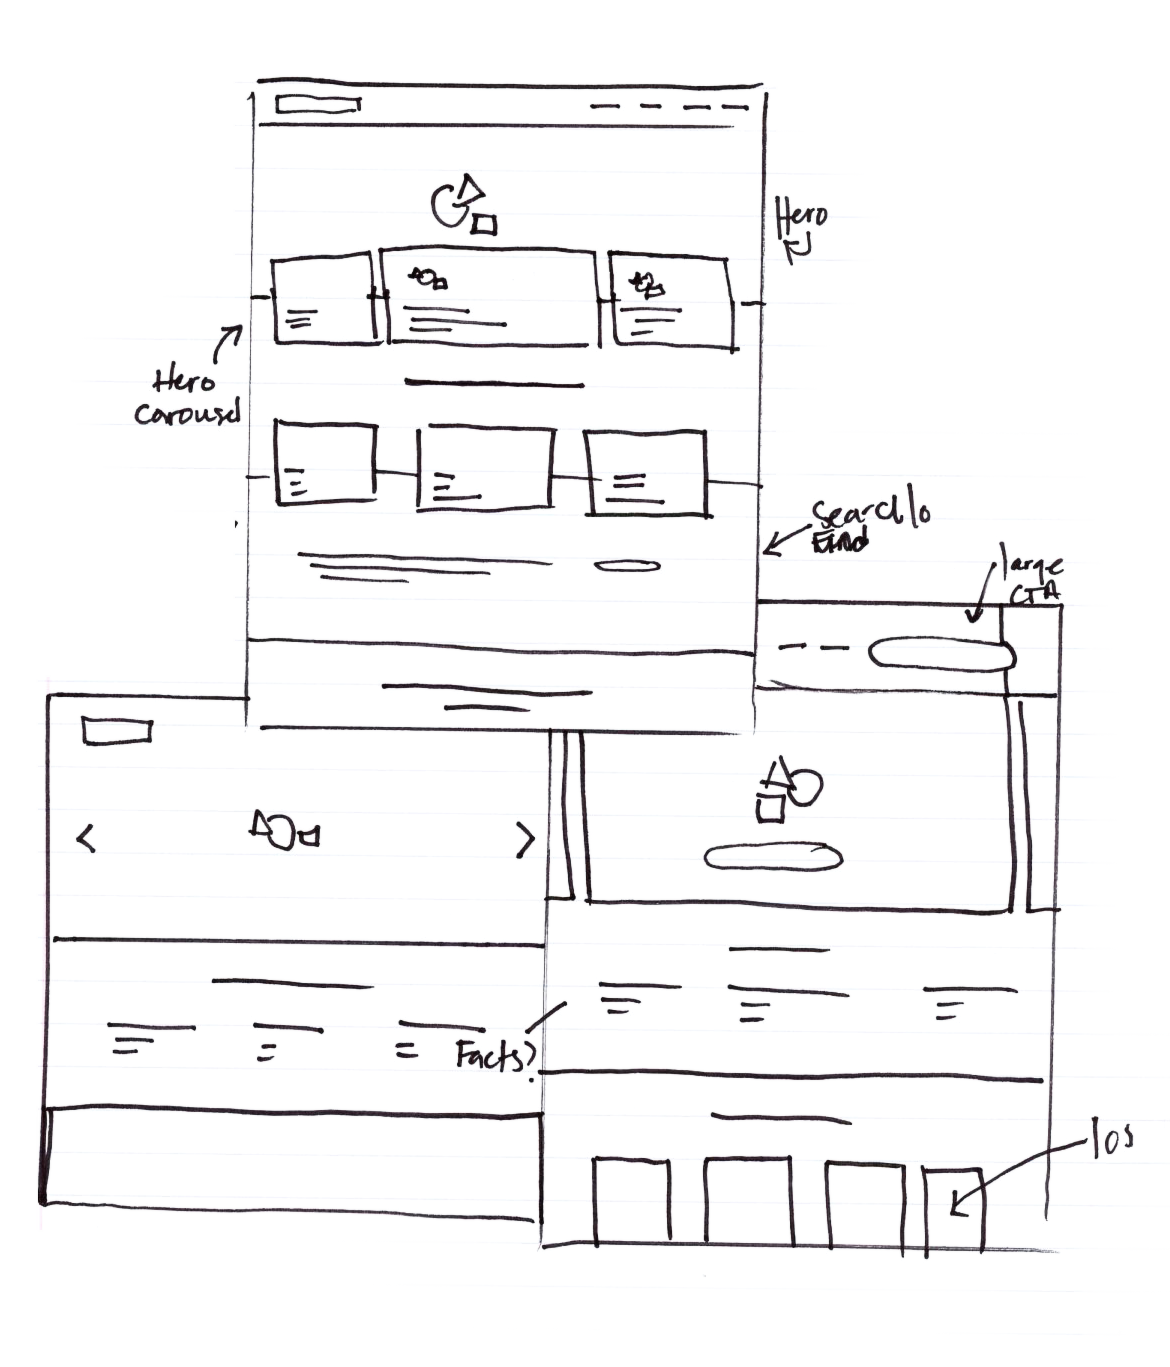 Hero
Hero
Carousel
Search/o
Find
large
CTA
Facts?